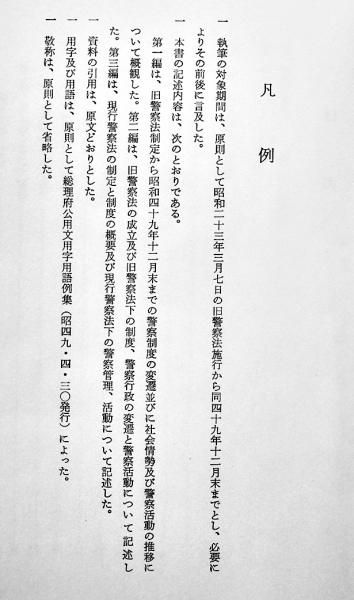 凡例
一 執筆の対象期間は、原則として昭和二十三年三月七日の旧警察法施行から同四十九年十二月末までとし、必要に
よりその前後に言及した。
一 本書の記述内容は、次のとおりである。
第一編は、旧警察法制定から昭和四十九年十二月末までの警察制度の変遷並びに社会情勢及び警察活動の推移に
ついて概観した。第二編は、旧警察法の成立及び旧警察法下の制度、警察行政の変遷と警察活動について記述し
た。第三編は、現行警察法の制定と制度の概要及び現行警察法下の警察管理、活動について記述した。
一 資料の引用は、原文どおりとした。
一 用字及び用語は、原則として総理府公用文用字用語例集（昭四九・四・三〇発行）によった。
一 敬称は、原則として省略した。